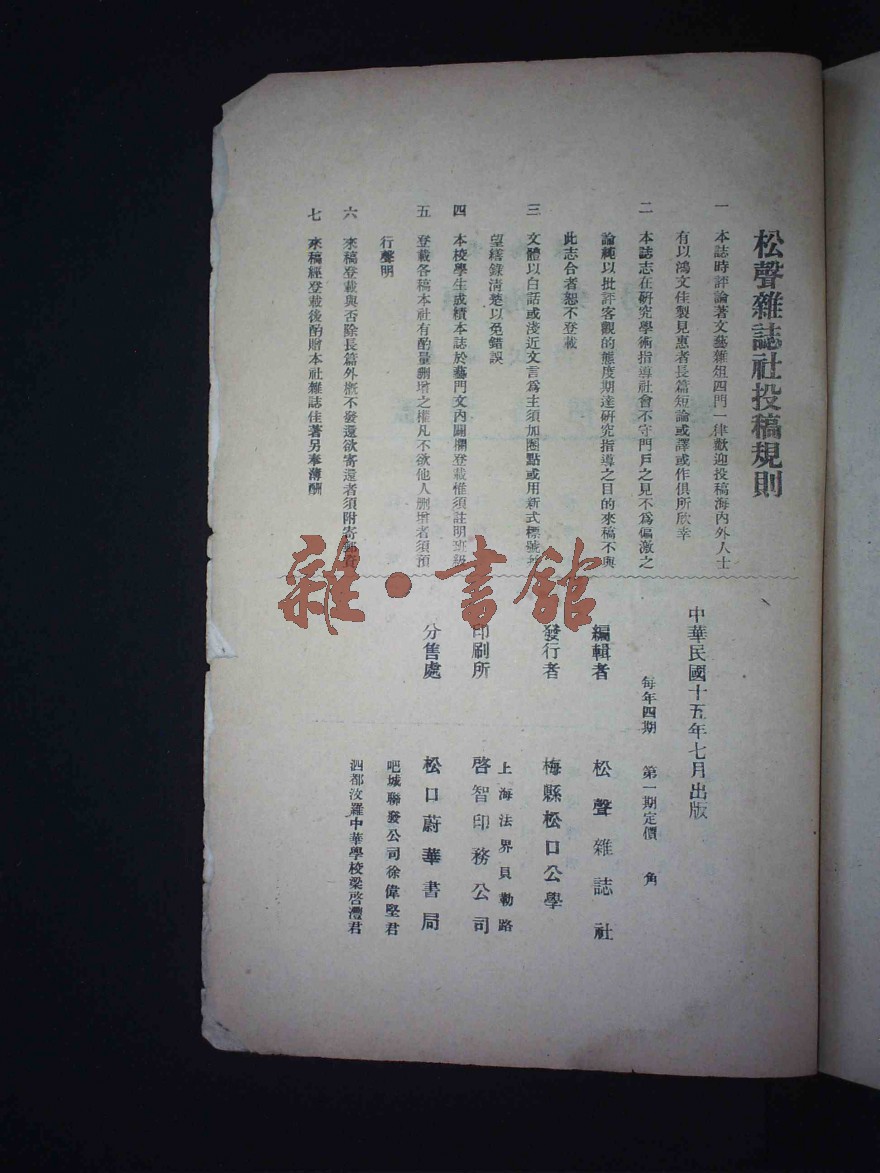 松聲雜誌社投稿規則
一 本誌時評論著文藝雜俎四門一律歡迎投稿海內外人士
有以鴻文佳製見惠者長篇短論或譯或作俱所欣幸
二 本誌志在研究學術指導社會不守門戶之見不爲偏激之
論純以批評客觀的態度期達研究指導之目的來稿不與
此志合者恕不登載
三 文體以白話或淺近文言爲主須加圈點或用新式標號並
望繕錄清楚以免錯誤
四 本校學生成績本誌於藝門文內闢欄登載惟須註明班級
五 登載各稿本社有酌量删增之權凡不欲他人删增者須預
行聲明
六 來稿登載與否除長篇外概不發還欲寄還者須附寄郵資
七 來稿經登載後酌贈本社雜誌佳著另奉薄酬
中華民國十五年七月出版
每年四期 第一期定價 角
編輯者 松聲雜誌社
發行者 梅縣松口公學
上海法界貝勒路
印刷所 啓智印務公司
分售處 松口蔚華書局
吧城聯發公司徐偉堅君
泗都汶羅中華學校梁啓灃君
雜·書館